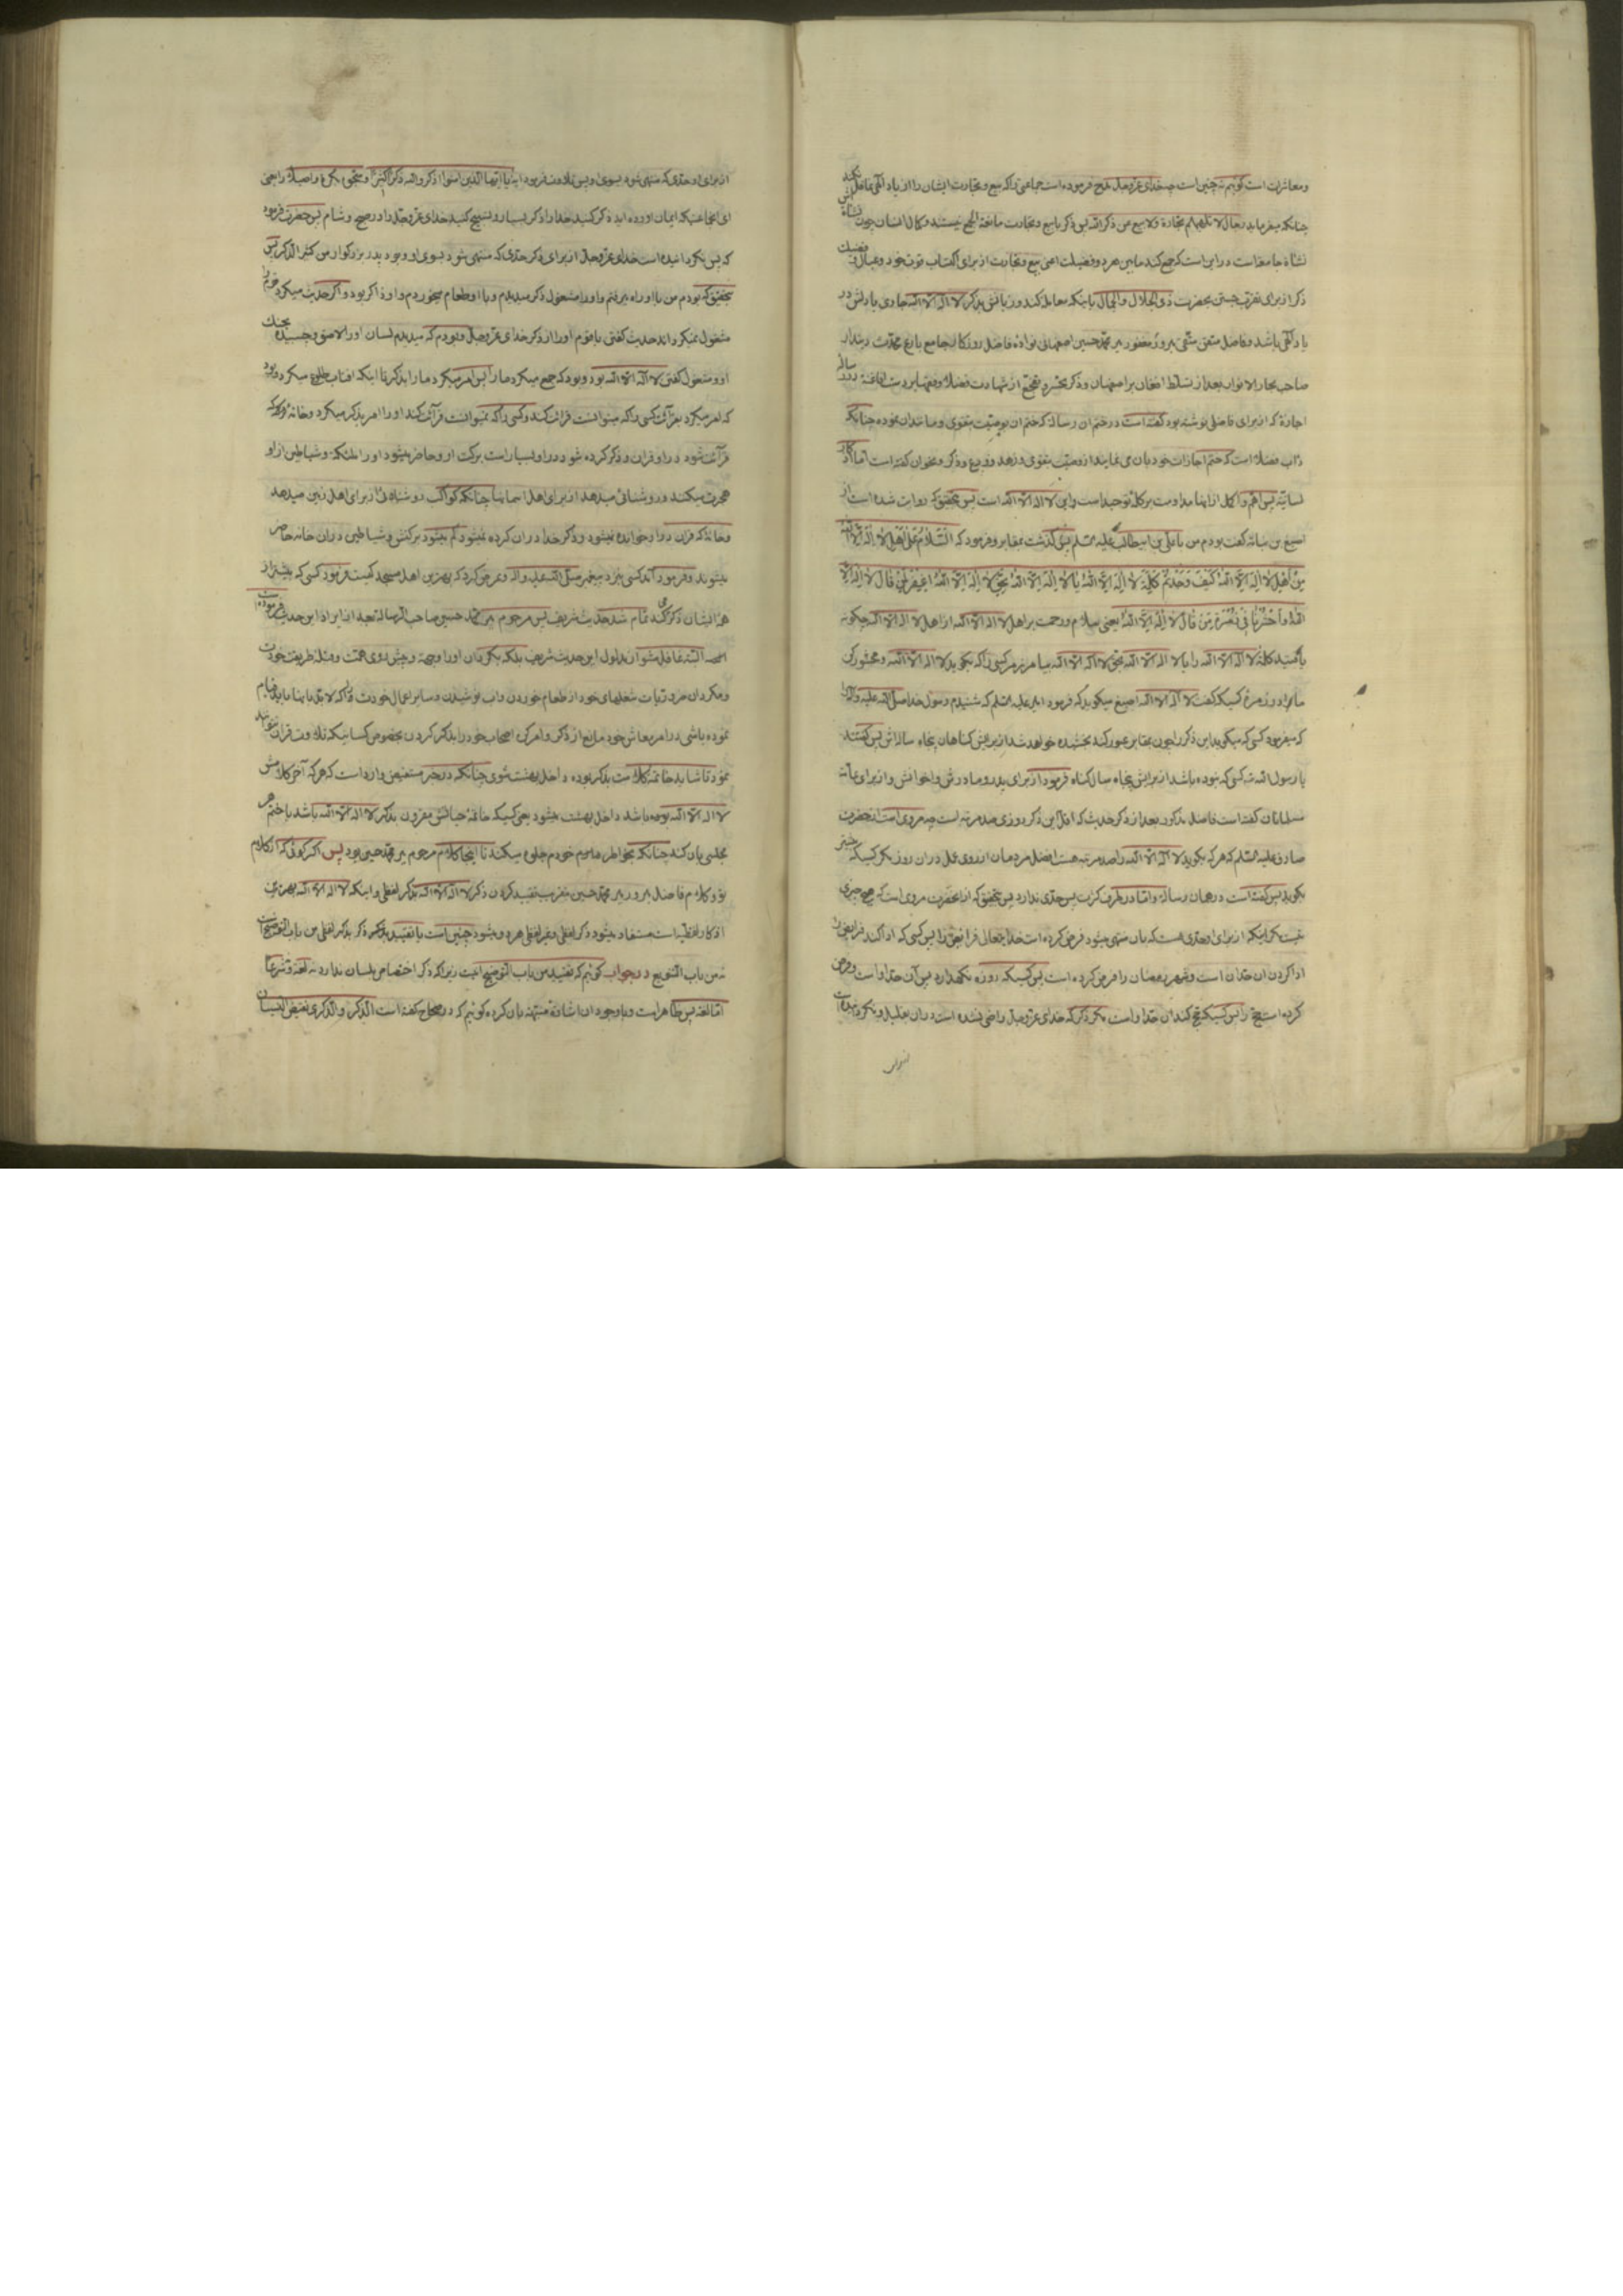 ومعاشرت است کوئیم نه چنین است چه خدای عزوجل مدح فرموده است جماعتی را که بیع و تجارت ایشان را از یاد الهی غافل نکند
چنانکه میفرماید رجال لا تلهیهم تجارة ولا بیع عن ذکر الله پس ذکر با بیع و تجارت مانعة الجمع نیستند و کمال انسان چون نشأه اش
نشأه جامعه است در این است که جمع کند مابین هر دو فضیلت اعنی بیع و تجارت از برای اکتساب قوت خود و عیال و فضیلت
ذکر از برای تقرب جستن بحضرت ذی الجلال والجمال باینکه معامله کند و زبانش بذکر لا اله الا الله جاری یا دلش در
یاد الهی باشد و فاضل متقی میرور مغفور میر محمد حسین اصفهانی نواده فاضل روزکار جامع بارع محدث دیندار
صاحب بحار الانوار بعد از تسلط افغان بر اصفهان و ذکر تفجع از شهادت فضلا و فقها بر دست افاغنه در رساله
اجازه که از برای فاضلی نوشته بود کفته است در ختم ان رساله که ختم ان بوصیت بتقوی و مانندان نموده چنانکه
داب فضلا است که ختم اجازات خودبان می نمایند از وصیت بتقوی و زهد و ورع و ذکر و نحوان کفته است اما اذکار
لسانیه پس اهم و اکمل از اینها مداومت بر کله توحید است و این لا اله الا الله است پس بتحقیق که روایت شده است از
اصبغ بن نباته کفت بودم من با علی بن ابیطالب علیه السلم پس کذشت بمقابر و فرمود که السَّلامُ عَلی اَهْلِ لا اِلهَ اِلَّا اللهُ
مِنْ اَهْلِ لا اِلهَ اِلَّا اللهُ کَیْفَ وَجَدْتُمْ کَلِمَةَ لا اِلهَ اِلَّا اللهُ یا لا اِلهَ اِلَّا اللهُ بِحَقِّ لا اِلهَ اِلَّا اللهُ اِغْفِرْ لِمَنْ قالَ لا اِلهَ اِلَّا
اللهُ وَاحْشُرْنا فی زُمْرَةِ مَنْ قالَ لا اِلهَ اِلَّا اللهُ یعنی سلام و رحمت بر اهل لا اله الا الله از اهل لا اله الا الله چکونه
یافتید کلمه لا اله الا الله را یا لا اله الا الله بحق لا اله الا الله بیامرز مر کسی را که بکوید لا اله الا الله و محشور کن
مارا در زمره کسیکه کفت لا اله الا الله اصبغ میکوید که فرمود امیر علیه السلم که شنیدم رسول خدا صلی الله علیه واله را
که میفرمود کسی که میکوید این ذکر را چون بمقابر عبور کند بخشیده خواهد شد از برایش کناهان پنجاه سالش پس کفتند
یا رسول الله نه کسی که نبوده باشد از برایش پنجاه سال کناه فرمود از برای پدر و مادرش و اخوانش و از برای عامه
مسلمانان کفته است فاضل مذکور بعد از ذکر حدیث که اقل این ذکر روزی صد مرتبه است چه مروی است از حضرت
صادق علیه السلم که هر که بکوید لا اله الا الله را صد مرتبه هست افضل مردمان از روی عمل در ان روز مکر کسیکه بیشتر
بکوید پس کفته است در همان رساله و اما در طرف کثرت پس حدی ندارد پس بتحقیق که از انحضرت مروی است که هیچ چیزی
نیست مکر اینکه از برای او حدی هست که بان منتهی میشود فرض کرده است خدایتعالی فرایض را پس کسی که ادا کند فرایض را
ادا کردن ان حد ان است و شهر رمضان را فرض کرده است پس کسیکه روزه نکهدارد پس آن حد او است و فرض
کرده است حج را پس کسیکه حج کند ان حد او است مکر ذکر که خدای عزوجل راضی نشده است در ان بقلیل و نکردانیده است
از برای او حدی که منتهی شود بسوی او پس تلاوت فرمود ایه یا ایها الذین امنوا اذکروا الله ذکرا کثیرا وسبحوه بکرة واصیلا را یعنی
ای انجماعتیکه ایمان اورده اید ذکر کنید خدا را ذکر بسیار و تسبیح کنید خدای عزوجل را در صبح و شام پس حضرت فرمود
که پس نکردانیده است خدای عزوجل از برای ذکر حدی که منتهی شود بسوی او و بود پدر بزرکوار من کثیر الذکر پس
بتحقیق که بودم من با او راه میرفتم و او را مشغول ذکر میدیدم و با او طعام میخوردم و او ذاکر بود و اکر حدیث میکرد قوم را
مشغول نمیکرداند حدیث کفتن با قوم او را از ذکر خدای عزوجل و بودم که میدیدم لسان او را لاصق و چسبیده بحنک
او و مشغول کفتن لا اله الا الله بود و بود که جمع میکرد ما را پس امر میکرد ما را بذکر تا اینکه افتاب طلوع میکرد و بود
که امر میکرد بقرائت کسی را که میتوانست قرائت کند و کسی را که نمیتوانست قرائت کند او را امر بذکر میکرد و خانه که
قرآئت شود در او قران و ذکر کرده شود در او بسیار است برکت او و حاضر میشود او را ملئکه و شیاطین از او
هجرت میکنند و روشنائی میدهد از برای اهل اسمانها چنانکه کواکب روشنائی از برای اهل زمین میدهد
و خانه که قران در او خوانده نمیشود و ذکر خدا در ان کرده نمیشود کم میشود برکتش و شیاطین در ان خانه حاضر
میشوند و فرمود آمد کسی نزد پیغمبر صلی الله علیه واله و عرض کرد که بهترین اهل مسجد کیست فرمود کسی که بیشتر از
همه ایشان ذکر میکند تمام شد حدیث شریف پس مرحوم میر محمد حسین صاحب الرساله بعد از ایراد این حدیث فرموده است
البته غافل مشو از مدلول این حدیث شریف بلکه بکردان او را وجهه و پیش روی همت و قبله طریقت خودت
و مکردان ضروریات شغلهای خود از طعام خوردن و اب نوشیدن و سایر اعمال خودت را که لابد بانها باید قیام
نموده باشی در امر معاش خود مانع از ذکر و امر کن اصحاب خود را بذکر کردن بخصوص کسانیکه تلاوت قران نتوانند
نمود تا شاید خاتمه کلامت بذکر بوده داخل بهشت شوی چنانکه در خبر مستفیض وارد است که هر که آخر کلامش
لا اله الا الله بوده باشد داخل بهشت میشود یعنی کسیکه خاتمه حیاتش مقرون بذکر لا اله الا الله باشد یا ختم هر
مجلسی بان کند چنانکه بخواطر مرحوم خودم جلوه میکند تا اینجا کلام مرحوم میر محمد حسین بود پس اکر کوئی که از کلام
تو و کلام فاضل میرور میر محمد حسین بتقریب تقیید کردن ذکر لا اله الا الله بذکر لفظی و اینکه لا اله الا الله بهترین
اذکار لفظیه است مستفاد میشود ذکر لفظی و غیر لفظی هر دو میشود چنین است یا تقیید ذکر بذکر لفظی من باب التوضیح است
نه من باب التنویع در جواب کوئیم که تقیید من باب التوضیح نیست زیرا که ذکر اختصاص بلسان ندارد نه لغة و نه شرعا
اما لغة پس ظاهر است و با وجود ان اشارة منبهه بان کرده کوئیم که در صحاح کفته است الذکر والذکری نقیض النسیان